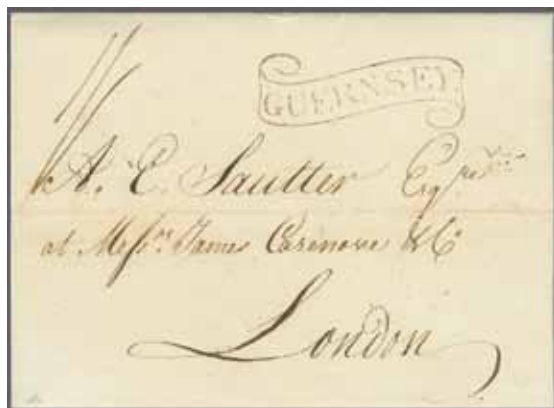 GUERNSEY
A. E. Sautter Esqre
at Messrs. James Cazenove & Co
London